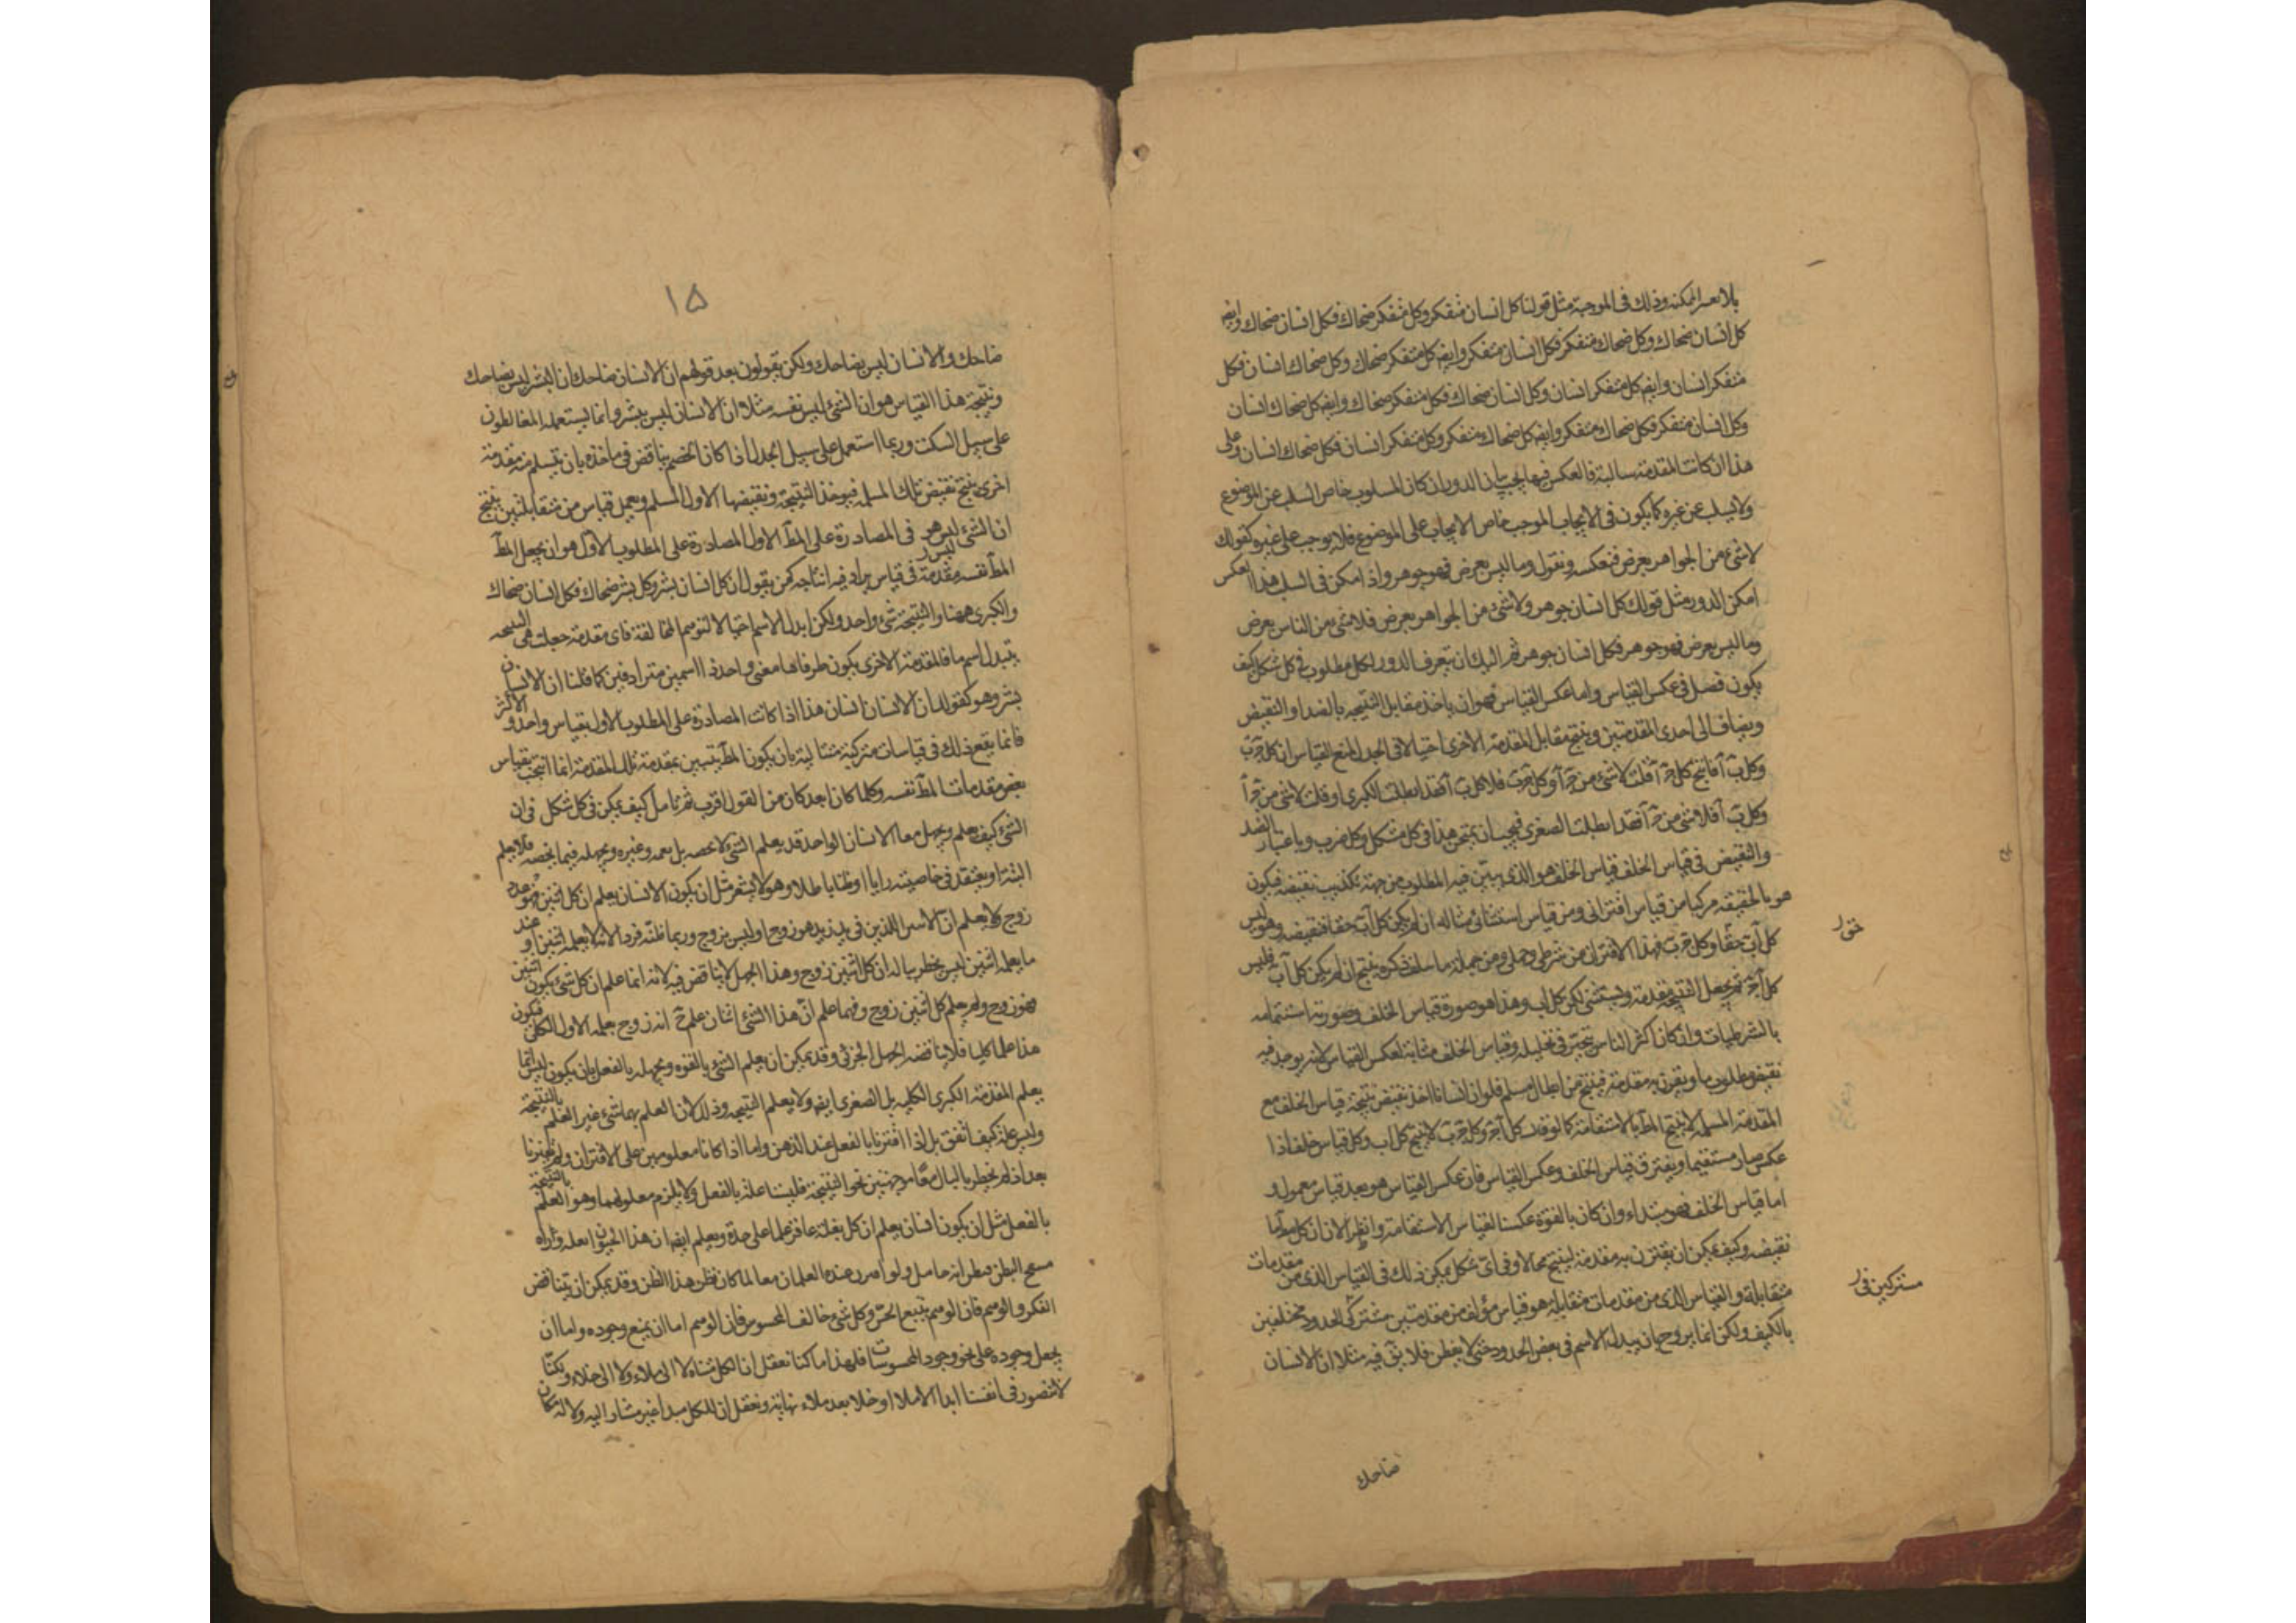 بلا تعسر امكنه وذلك فى الموجبة مثل قولنا كل انسان متفكر وكل متفكر ضحاك فكل انسان ضحاك وايضا
كل انسان ضحاك وكل ضحاك متفكر فكل انسان متفكر وايضا كل متفكر ضحاك وكل ضحاك انسان فكل
متفكر انسان وايضا كل متفكر انسان وكل انسان ضحاك فكل متفكر ضحاك وايضا كل ضحاك انسان
وكل انسان متفكر فكل ضحاك متفكر وايضا كل ضحاك متفكر وكل متفكر انسان فكل ضحاك انسان وعلى
هذا ان كانت المقدمة سالبة فالعكس فيها يجب بيان الدور ان كان المسلوب خاص السلب عن الموضوع
ولا يسلب عن غيره كما يكون فى الايجاب الموجب خاص الايجاب على الموضوع فلا يوجب على غيره كقولك
لا شئ من الجواهر بعرض فنعكسه ونقول وما ليس بعرض فهو جوهر واذ امكن فى السلب هذا العكس
امكن الدور مثل قولك كل انسان جوهر ولا شئ من الجواهر بعرض فلا شئ من الناس بعرض
وما ليس بعرض فهو جوهر فكل انسان جوهر ثم اليك ان تتعرف الدور لكل مطلوب فى كل شكل كيف
يكون فصل فى عكس القياس واما عكس القياس فهو ان ياخذ مقابل النتيجه بالضد او النقيض
ويضاف الى احدى المقدمتين وينتج مقابل المقدمة الاخرى احتيالا فى الجدل لمنع القياس ان كل ج ب
وكل ب آ فانتج كل ج آ قلت لا شئ من ج آ وكل ج ب فلا كل ب آ فقد ابطلت الكبرى او قلت لا شئ من ج آ
وكل ب آ فلا شئ من ج آ فقد ابطلت الصغرى فيجب ان يمتحن هذا فى كل شكل وكل ضرب وباعتبار الضد
والنقيض فى قياس الخلف قياس الخلف هو الذى يبين فيه المطلوب من جهة تكذيب نقيضه فيكون
هو بالحقيقه مركبا من قياس اقترانى ومن قياس استثنائى مثاله ان لم يكن كل آب حقا فنقيضه وهو ليس
كل آب حقا وكل ج ب فهذا الاقتران من شرطى وحملى ومن جملة ما سلف ذكره ينتج ان لم يكن كل آب فليس
كل آج ثم يجعل النتيجة مقدمة ويستثنى لكن كل اب وهذا هو صورة قياس الخلف وصورته استتمامه
بالشرطيات وان كان اكثر الناس يتحير فى تحليله وقياس الخلف مشابه لعكس القياس لانه يوجد فيه
نقيض مطلوب ما ويقرن به مقدمة فينتج من ابطال مسلم فلو ان انسانا اخذ نقيض نتيجة قياس الخلف مع
المقدمة المسلمة لانتج المط بالاستقامة كما لو قلت كل آج وكل ج ب لانتج كل اب وكل قياس خلف اذا
عكس صار مستقيما ويفترق قياس الخلف وعكس القياس فان عكس القياس هو بعد قياس معمول و
اما قياس الخلف فهو مبتداء وان كان بالقوة عكسنا لقياس الاستقامة وانظر الان ان كل مط ما
نقيضه وكيف يمكن ان يقترن به مقدمة لينتج محالا وفى اى شكل يمكن ذلك فى القياس الذى من مقدمات
متقابلة والقياس الذى من مقدمات متقابلة هو قياس مؤلف من مقدمتين مشتركى الحدود مختلفين
بالكيف ولكن انما يروج بان يبدل الاسم فى بعض الحدود حتى لا يفطن فلا يق فيه مثلا ان الانسان
مشتركين فى
ضاحك
١۵
ضاحك والانسان ليس بضاحك ولكن يقولون بعد قولهم ان الانسان ضاحك ان البشر ليس بضاحك
ونتيجة هذا القياس هو ان الشئ ليس نفسه مثلا ان الانسان ليس ببشر وانما يستعمله المغالطون
على سبيل السكت وربما استعمل على سبيل الجدل اذا كان الخصم يناقض فى ماخذه بان يتسلم منه مقدمة
اخرى ينتج نقيض تلك المسلمه فيوخذ النتيجة ونقيضها الاول المسلم ويعمل قياس من متقابلتين ينتج
ان الشئ ليس هو فى المصادرة على المط الاول المصادرة على المطلوب الاول هو ان يجعل المط
المط نفسه مقدمة فى قياس يراد فيه انتاجه كمن يقول ان كل انسان بشر وكل بشر ضحاك فكل انسان ضحاك
والكبرى ههنا والنتيجة شئ واحد ولكن ابدل الاسم احتيالا لتوهم المخالفة فاى مقدمة جعلت هى النتيجه
بتبدل اسم ما فالمقدمة الاخرى يكون طرفاها معنى واحد ذا اسمين مترادفين كما قلنا ان الانسان
بشر وهو كقولك ان الانسان انسان هذا اذا كانت المصادرة على المطلوب الاول بقياس واحد والاكثر
فانما يقع ذلك فى قياسات متركبة متتالية بان يكون المط تتبين بمقدمة تلك المقدمة انما انتجت بقياس
بعض مقدمات المط نفسه وكلما كان ابعد كان من القول اقرب ثم تامل كيف يمكن فى كل شكل فى ان
الشئ كيف يعلم ويجهل معا الانسان الواحد قد يعلم الشئ لا بخصه بل يعمه وغيره ويجهله فيما يخصه فلا يعلم
البتة او يعتقد فى خاصيته رايا او ظنا باطلا وهو لا يشعر مثل ان يكون الانسان يعلم ان كل اثنين فهو عدد
زوج ولا يعلم ان الاسر اللذين فى يد زيد هو زوج او ليس بزوج وربما ظنه فردا لانه لا يعلمه اثنين او عند
ما يعلمه اثنين ليس يخطر بباله ان كل اثنين زوج وهذا الجهل لا يناقض فيه لانه انما علم ان كل شئ يكون اثنين
فهو زوج ولم يعلم كل اثنين زوج وفهما علم ان هذا الشئ اثنان علم ح انه زوج بعلمه الاول الكلى فيكون
هذا علما كليا فلا يناقضه الجهل الجزئى وقد يمكن ان يعلم الشئ بالقوه ويجهله بالفعل بان يكون ليس انما
يعلم المقدمة الكبرى الكليه بل الصغرى ايضا ولا يعلم النتيجه وذلك لان العلم بهما شئ غير العلم بالنتيجة
وليس علة كيف اتفق بل اذا اقترنا بالفعل عند الذهن واما اذا كانا معلومين على الاقتران ولم يقترنا
بعد اذ لم يخطر بالبال معا موجهتين نحو النتيجة فليستا علة بالفعل ولا يلزم معلولهما وهو العلم بالنتيجة
بالفعل مثل ان يكون انسان يعلم ان كل بغلة عاقر علما على حدة ويعلم ايضا ان هذا الحيوان بغلة وراه
فظن انه حامل ولو اقترن عنده العلمان معا لما كان يظن هذا الظن وقد يمكن ان يتناقض
الفكر والوهم فان الوهم يتبع الحس وكل شئ خالف المحسوس فان الوهم اما ان يمنع وجوده واما ان
يجعل وجوده على نحو وجود المحسوسات فلهذا ما كنا نعقل ان الكل متناه لا الى ملاء ولا الى خلاء ولكنا
لا نتصور فى انفسنا ابدا الا ملا او خلا بعد ملاء نهاية ونعقل ان للكل مبدا غير مشار اليه ولا له مكان